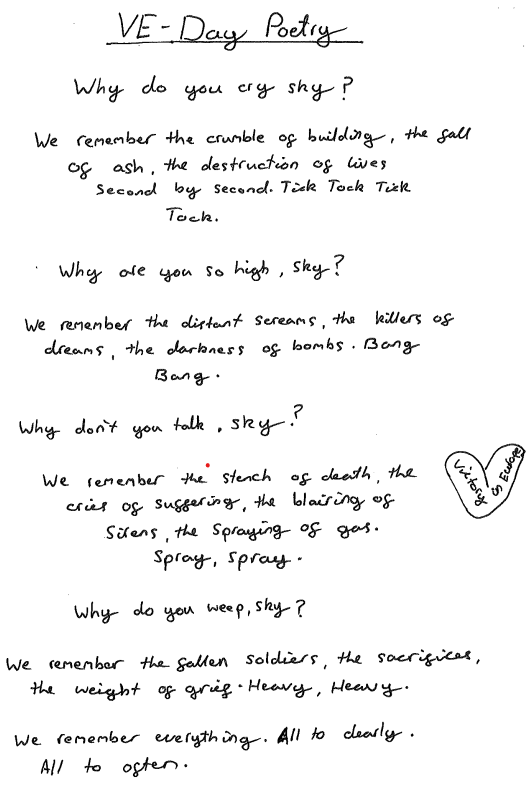 VE-Day Poetry
Why do you cry sky?
We remember the crumble of building, the fall
of ash, the destruction of lives
second by second. Tick Tock Tick
Tock.
Why are you so high, sky?
We remember the distant screams, the killers of
dreams, the darkness of bombs. Bang
Bang.
Why don't you talk, sky?
We remember the stench of death, the
cries of suffering, the blairing of
Sirens, the spraying of gas.
Spray, spray.
Victory
in Europe
Why do you weep, sky?
We remember the fallen soldiers, the sacrifices,
the weight of grief. Heavy, Heavy.
We remember everything. All to clearly.
All to often.